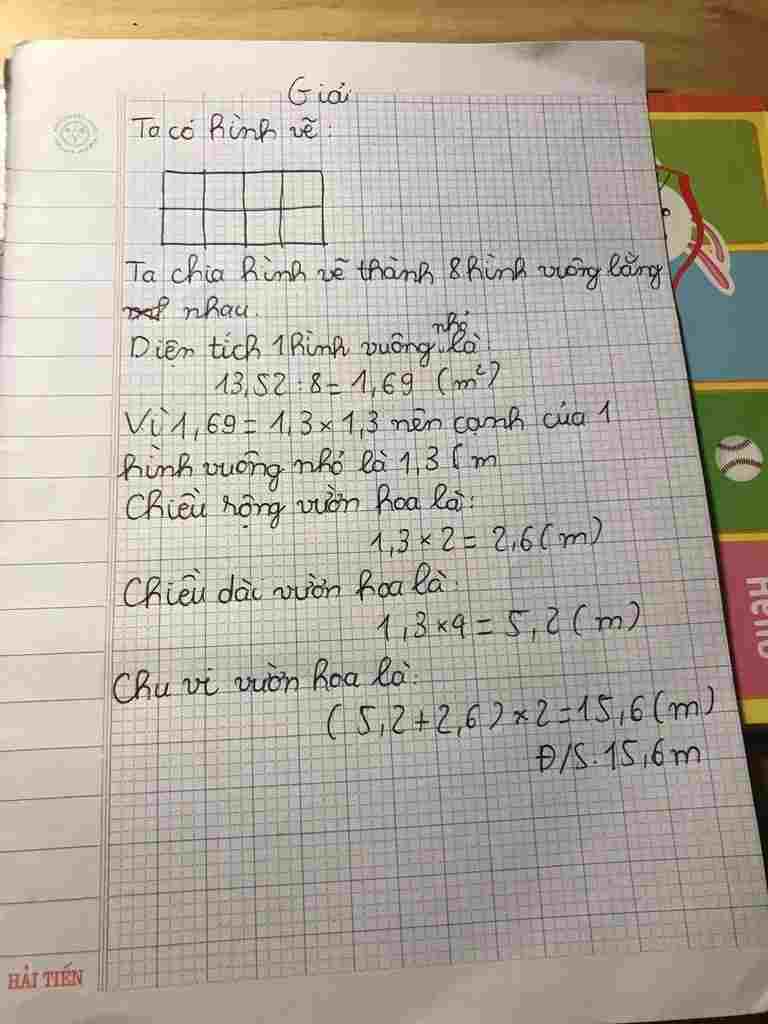 Giải
Ta có hình vẽ:
Ta chia hình vẽ thành 8 hình vuông bằng
nhau.
Diện tích 1 hình vuông nhỏ là
13,52 : 8 = 1,69 (m²)
Vì 1,69 = 1,3 × 1,3 nên cạnh của 1
hình vuông nhỏ là 1,3 ( m
Chiều rộng vườn hoa là:
1,3 × 2 = 2,6 (m)
Chiều dài vườn hoa là:
1,3 × 4 = 5,2 (m)
Chu vi vườn hoa là:
(5,2 + 2,6) × 2 = 15,6 (m)
Đ/S. 15,6 m
HẢI TIẾN
Hello